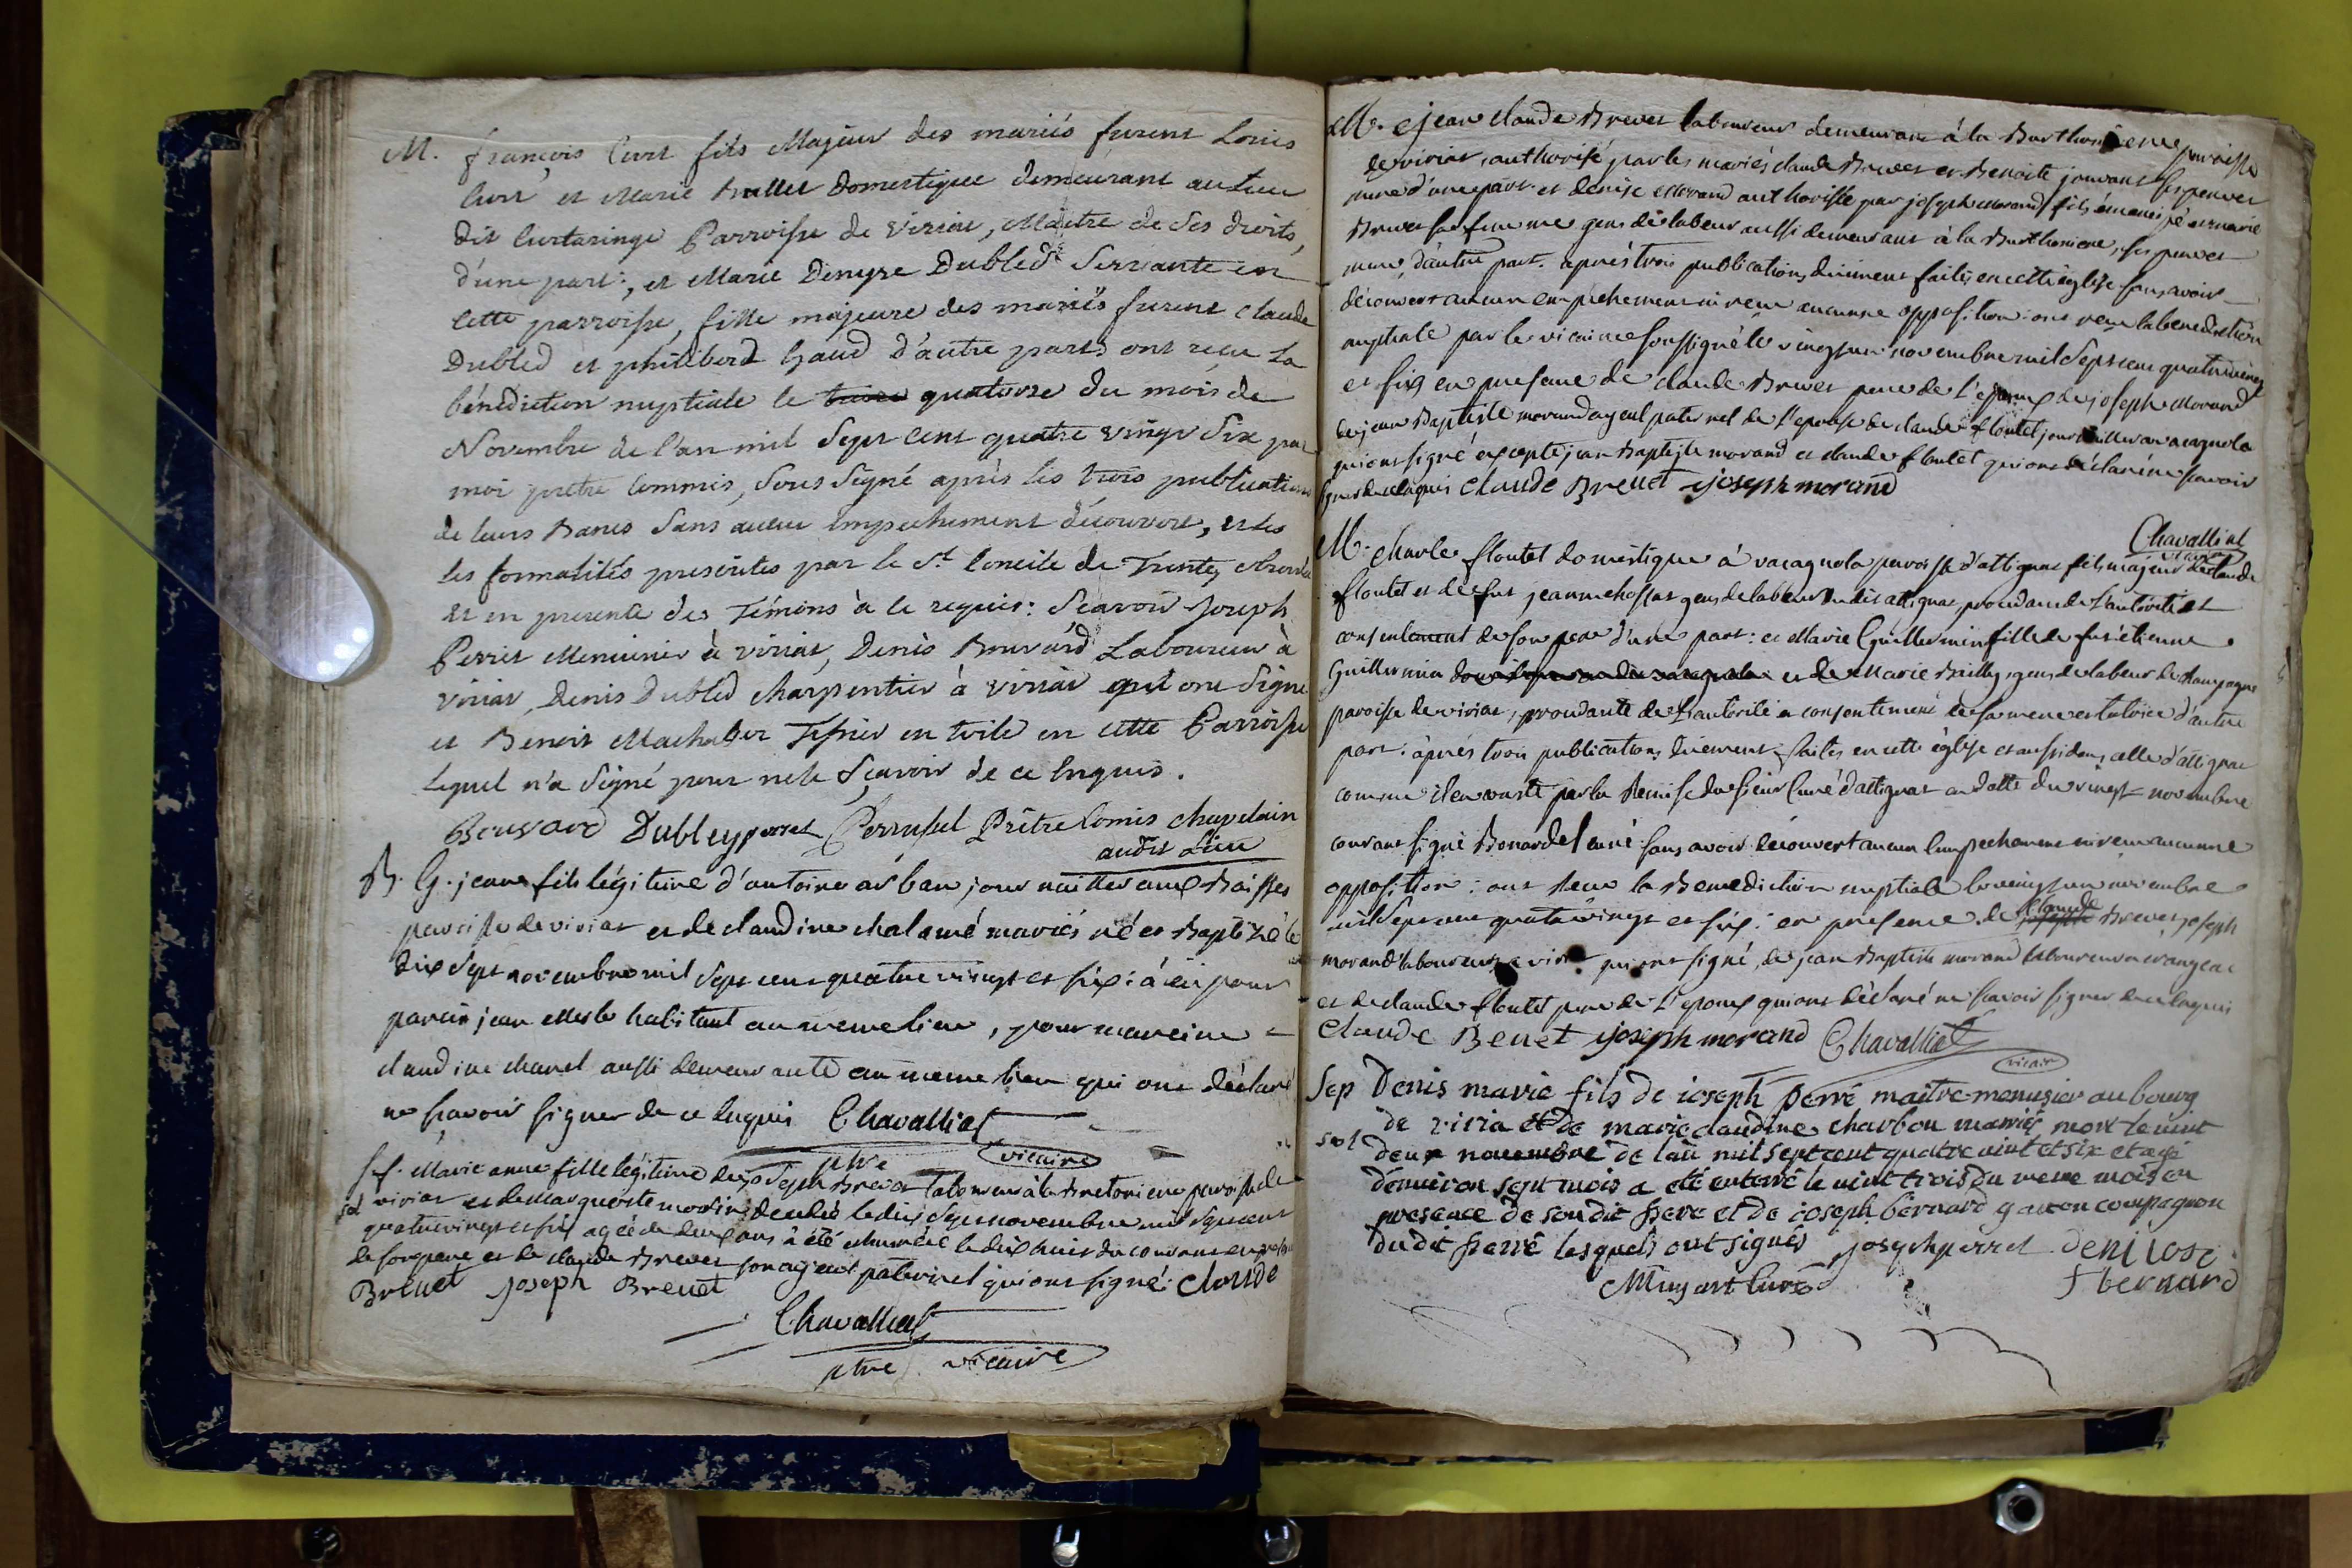 M. françois Curt fils Majeur des mariés furent Louis
Curt et Marie Mallet Domestique demeurant au lieu
dit Curtaringe Parroisse de Viriat, Maître de ses droits,
d'une part:, et Marie Denyse Dubled Servante en
cette parroisse, fille majeure des mariés furent Claude
Dubled et philiberd Gaud d'autre parts ont reçu la
bénédiction nuptiale le quatorze du mois de
Novembre de l'an mil Sept Cent quatre vingt Six par
moi prêtre Commis, Sous Signé après les trois publications
de leurs Bancs Sans aucun Empechement découvert, et les
les formalités prescrites par le St Concile de Trente,
et en presence des Témoins à ce requis: Scavoir Joseph
Perret Menuisier à viriat, Denis Bouvard Laboureur à
viriat, Denis Dubled charpentier à Viriat qui ont Signé
et Benoit Tissier en toile en cette Parroisse
Lequel n'a Signé pour ne le Sçavoir de ce Enquis.
Bouvard Dubley perret Perrusel Prêtre Comis chapelain
audit Lieu
B. G. jean fils légitime d'antoine arban journaillier aux Baisses
paroisse de viriat et de claudine chalamé mariés né et Baptizé le
dix Sept novembre mil Sept cent quatre vingt et six: à eu pour
parain jean habitant au meme lieu, pour mareine
claudine chanel aussi demeurante au meme lieu qui ont déclaré
ne scavoir signer de ce Enquis Chavalliat
ptre vicaire
Sf. Marie anne fille légitime de joseph Brevet laboureur à la Bretoniere paroisse de
viriat et de Marguerite morin décédée le dix Sept novembre mil Sept cent
quatre vingt et six agée de deux ans à été inhumée le dix huit du courant en presence
de son pere et de claude Brevet son ayeul paternel qui ont signé: claude
Breuet joseph Breuet
Chavalliat
ptre vicaire
M. jean claude Brevet laboureur demeurant à la Barthoniere paroisse
de viriat, authorisé par les mariés claude Brevet et Benoite jouvant ses pere et
mere d'une part: et denise Morand authorisée par joseph Morand fils émancipé et marie
Brevet sa femme gens de labeur aussi demeurant à la Barthoniere, ses pere et
mere, d'autre part. après trois publications düment faites en cette église sans avoir
découvert aucun empechement ni reçu aucunne opposition: ont reçu la benediction
nuptiale par le vicaire soussigné le vingt un novembre mil Sept cent quatre vingt
et six en presence de claude Brevet pere de l'epoux de joseph Morand
de jean Baptiste morand ayeul paternel de l'epouse de claude floutet journaillier a vacagnola
qui ont signé excepté jean Baptiste morand et claude floutet qui ont déclaré ne scavoir
signer de ce enquis Claude Breuet joseph morand
Chavalliat
vicaire
M. charle floutet domestique à vacagnola paroisse d'attignat fils majeur de claude
floutet et de fut jeanne gens de labeur dudit attignat, procedant de l'autorité et
consentement de son pere d'une part: et Marie Guillermin fille de fut étienne
Guillermin et de Marie Bailly gens de labeur de champagne
paroisse de viriat, procedante de l'autorité et consentement de sa mere et tutrice d'autre
part: après trois publications düement faites en cette église et aussi dans celle d'attignat
comme il en conste par la Remise du Sieur Curé d'attignat en datte du vingt novembre
courant signé Bonardel curé sans avoir découvert aucun Empechement ni reçu aucunne
opposition: ont Reçu la Benediction nuptiale le vingt un novembre
mil Sept cent quatre vingt et six: en presence de claude Brevet, joseph
morand laboureurs a viriat qui ont signé, de jean Baptiste morand laboureur a
et de claude floutet pere de l'epoux qui ont déclaré ne scavoir signer de ce Enquis
Claude Beuet joseph morand Chavalliat
vicair
Sep Denis marie fils de ioseph perré maitre-menusier au bourg
de viria et de marie claudine charbon mariés mort le vint
sol deux nouembre de lan mil sept cent quatre vint et six et agé
d'enuiron sept mois a eté enterré le vint trois du meme mois en
presence de son dit pere et de ioseph bernard garcon compagnon
du dit perré lesquels ont signés joseph perret deni iose
f bernard
Mugart Curé